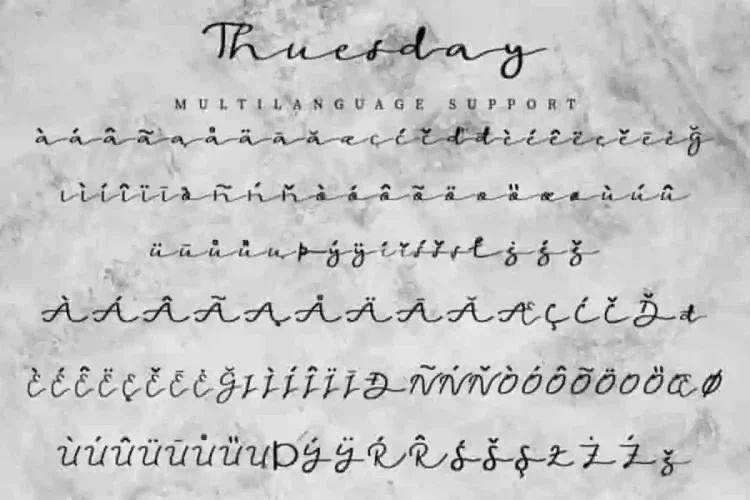 Thuesday
MULTILANGUAGE SUPPORT
à á â ã ą å ä ā ă æ ç ć č ď đ è é ê ë ę ě ē ė ğ
ı ì í î ï ī ñ ń ň ò ó ô õ ö ő œ ø ù ú û
ü ū ů ű ų þ ý ÿ ŕ ř ś š ş ł ż ź ž
À Á Â Ã Ą Å Ä Ā Ă Æ Ç Ć Č Ď đ
È É Ê Ë Ę Ě Ē Ė Ğ I Ì Í Î Ï Ī Đ Ñ Ń Ň Ò Ó Ô Õ Ö Ő Œ Ø
Ù Ú Û Ü Ū Ů Ű Ų Þ Ý Ÿ Ŕ Ř Ś Š Ş Ł Ż Ź ž